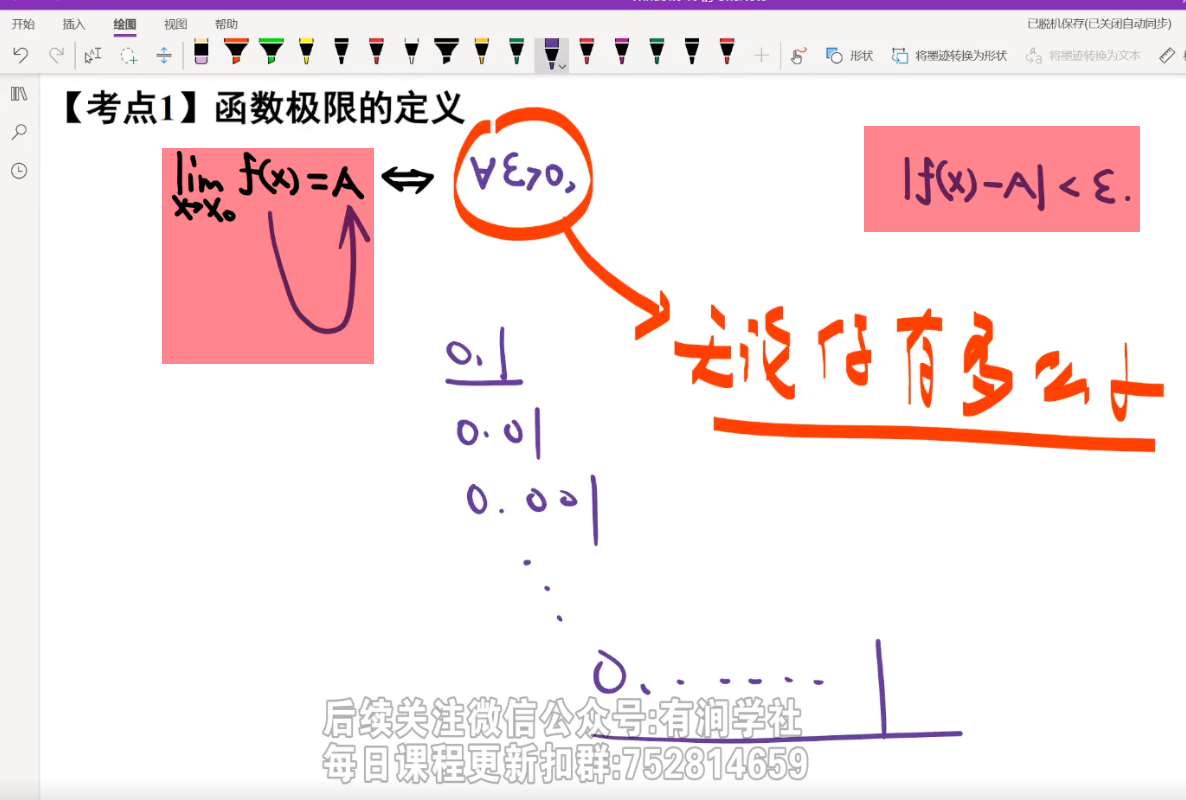 开始 插入 绘图 视图 帮助 已脱机保存(已关闭自动同步)
形状 将墨迹转换为形状 将墨迹转换为文本
【考点1】函数极限的定义
lim f(x)=A ⇔ ∀ε>0, |f(x)-A|<ε.
x→x₀
无论 有多么
0.1
0.01
0.001
0.......1
后续关注微信公众号:有润学社
每日课程更新扣群:752814659